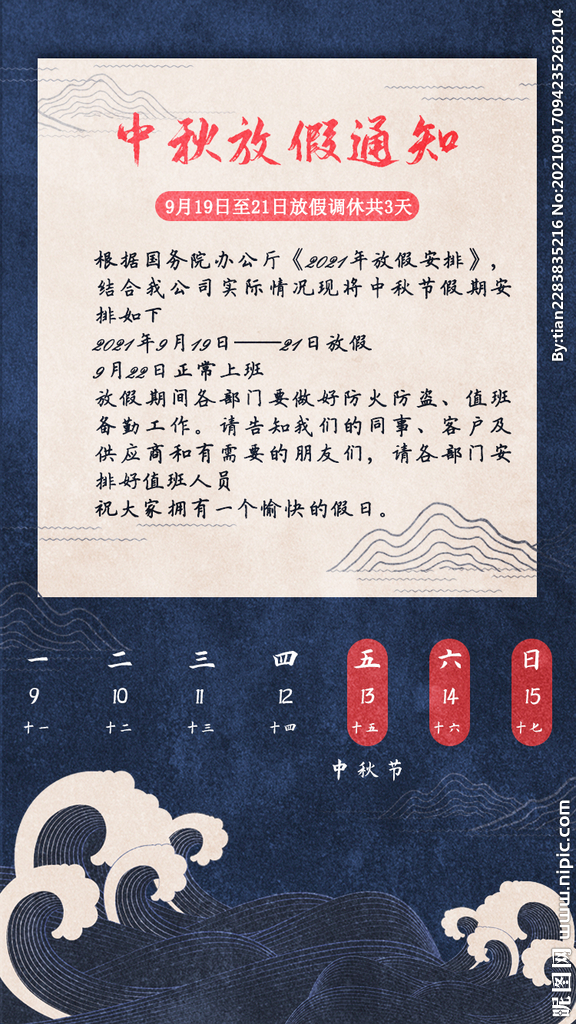 中秋放假通知
9月19日至21日放假调休共3天
根据国务院办公厅《2021年放假安排》,
结合我公司实际情况现将中秋节假期安
排如下
2021年9月19日——21日放假
9月22日正常上班
放假期间各部门要做好防火防盗、值班
备勤工作。请告知我们的同事、客户及
供应商和有需要的朋友们,请各部门安
排好值班人员
祝大家拥有一个愉快的假日。
一 二 三 四 五 六 日
9 10 11 12 13 14 15
十一 十二 十三 十四 十五 十六 十七
中秋节
By:tian2283835216 No:20210917094235262104
昵图网 www.nipic.com